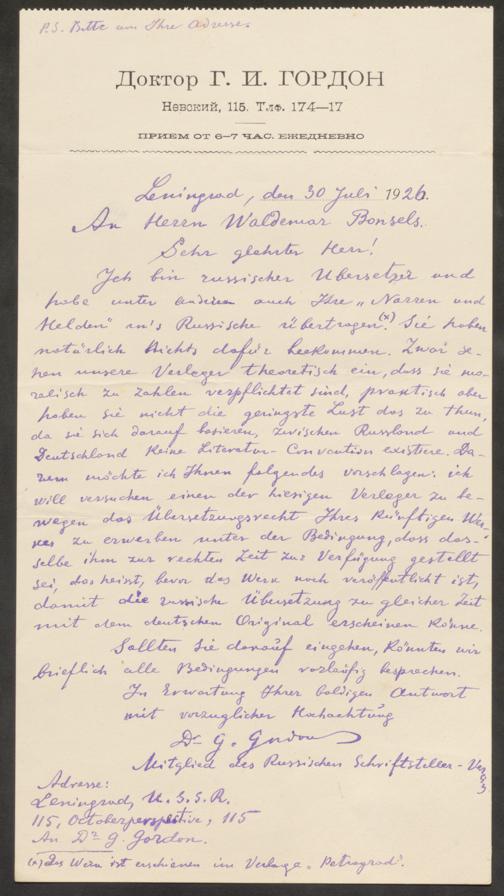 P.S. Bitte um Ihre Adresse.
Доктор Г. И. ГОРДОН
Невский, 115. Тлф. 174—17
ПРИЕМ ОТ 6—7 ЧАС. ЕЖЕДНЕВНО
Leningrad, den 30 Juli 1926.
An Herrn Waldemar Bonsels.
Sehr geehrter Herr!
Ich bin russischer Übersetzer und
habe unter anderen auch Ihre „Narren und
Helden" in's Russische übertragen.(x) Sie haben
natürlich Nichts dafür beekommen. Zwar se-
hen unsere Verleger theoretisch ein, dass sie mo-
ralisch zu zahlen verpflichtet sind, praktisch aber
haben sie nicht die geringste Lust das zu thun,
da sie sich darauf basieren, zwischen Russland und
Deutschland keine Literatur-Convention existiere. Da-
rum möchte ich Ihnen folgendes vorschlagen: ich
will versuchen einen der hiesigen Verleger zu be-
wegen das Übersetzungsrecht Ihres künftigen Wer-
kes zu erwerben unter der Bedingung, dass das-
selbe ihm zur rechten Zeit zur Verfügung gestellt
sei, das heisst, bevor das Werk noch veröffentlicht ist,
damit die russische Übersetzung zu gleicher Zeit
mit dem deutschen Original erscheinen könne.
Sollten Sie darauf eingehen, könnten wir
brieflich alle Bedingungen vorläufig besprechen.
In Erwartung Ihrer baldigen Antwort
mit vorzuglicher Hochachtung
Dr G. Gordon
Mitglied des Russischen Schriftsteller-
Adresse:
Leningrad, U.S.S.R.
115, Octoberperspective, 115
An Dr G. Gordon.
(x) Das Werk ist erschienen im Verlage „Petrograd".